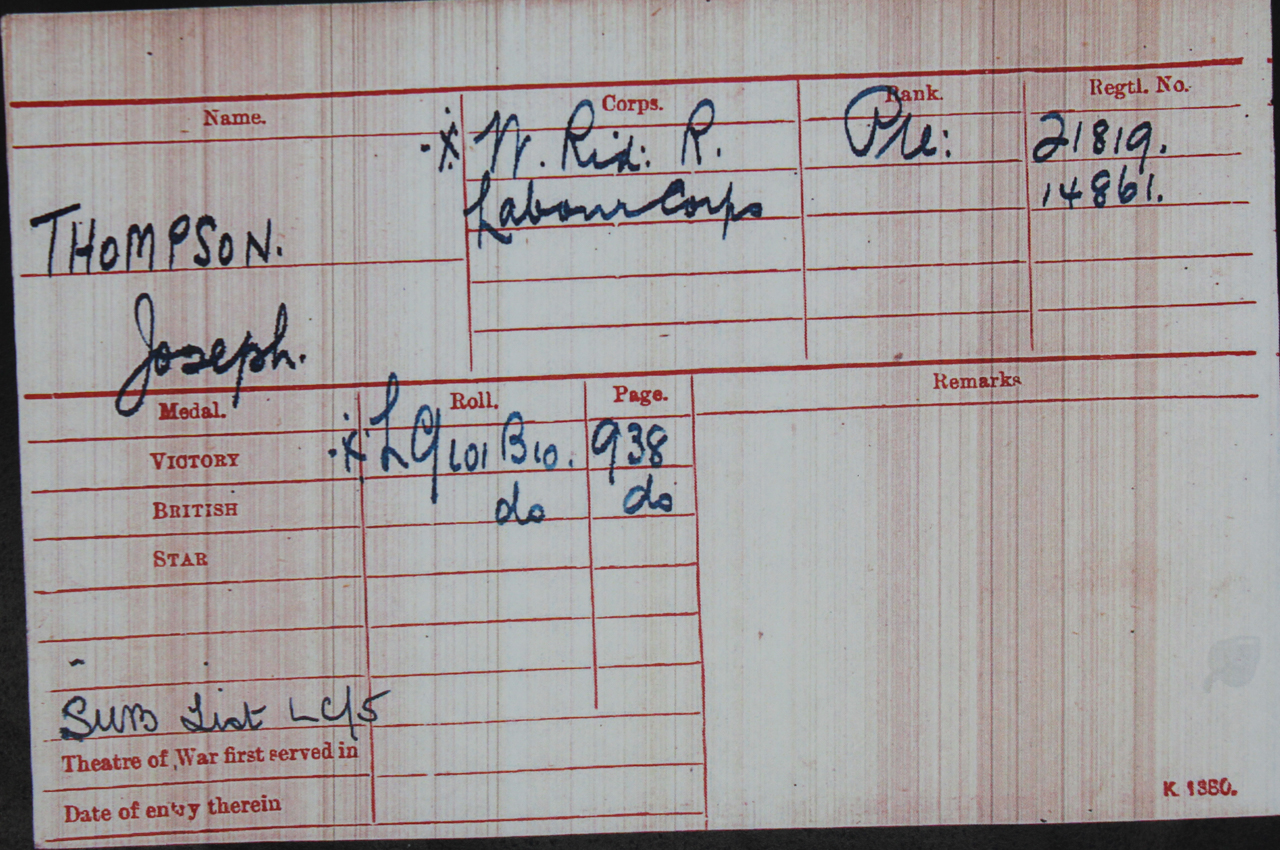 Name. Corps. Rank. Regtl. No.
·X W. Rid: R. Pte: 21819.
Labour Corps 14861.
THOMPSON.
Joseph.
Medal. Roll. Page. Remarks
VICTORY ·X LC/101 B10. 938
BRITISH do do
STAR
SWB List LC/5
Theatre of War first served in
Date of entry therein
K. 1380.